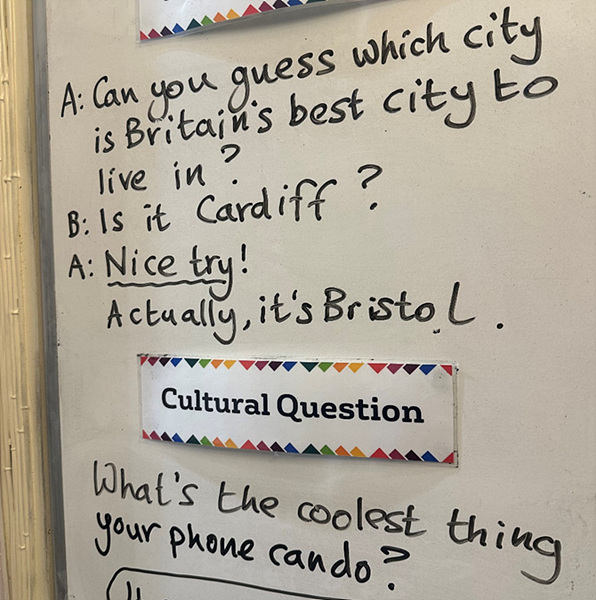 A: Can you guess which city
is Britain's best city to
live in?
B: Is it Cardiff?
A: Nice try!
Actually, it's Bristol.
Cultural Question
What's the coolest thing
your phone can do?